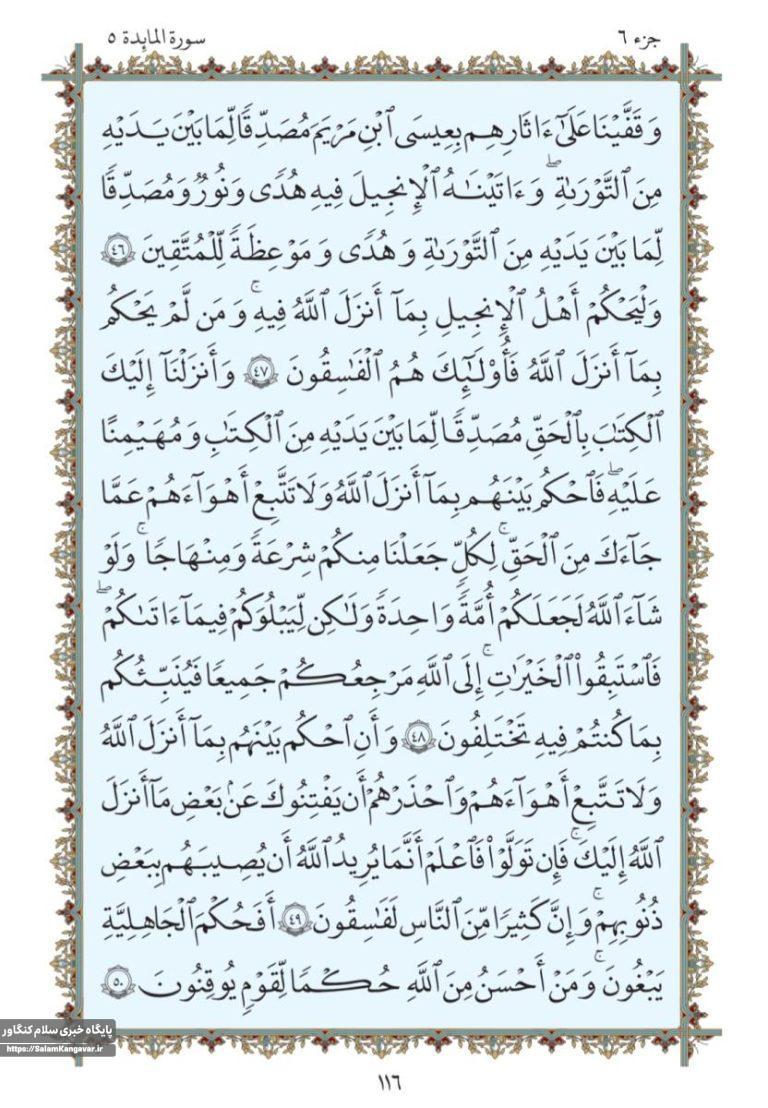 جزء ٦
سورة المائدة ٥
وَقَفَّيْنَا عَلَىٰٓ ءَاثَٰرِهِم بِعِيسَى ٱبْنِ مَرْيَمَ مُصَدِّقًا لِّمَا بَيْنَ يَدَيْهِ
مِنَ ٱلتَّوْرَىٰةِ ۖ وَءَاتَيْنَٰهُ ٱلْإِنجِيلَ فِيهِ هُدًى وَنُورٌ وَمُصَدِّقًا
لِّمَا بَيْنَ يَدَيْهِ مِنَ ٱلتَّوْرَىٰةِ وَهُدًى وَمَوْعِظَةً لِّلْمُتَّقِينَ ٤٦
وَلْيَحْكُمْ أَهْلُ ٱلْإِنجِيلِ بِمَآ أَنزَلَ ٱللَّهُ فِيهِ ۚ وَمَن لَّمْ يَحْكُم
بِمَآ أَنزَلَ ٱللَّهُ فَأُو۟لَٰٓئِكَ هُمُ ٱلْفَٰسِقُونَ ٤٧ وَأَنزَلْنَآ إِلَيْكَ
ٱلْكِتَٰبَ بِٱلْحَقِّ مُصَدِّقًا لِّمَا بَيْنَ يَدَيْهِ مِنَ ٱلْكِتَٰبِ وَمُهَيْمِنًا
عَلَيْهِ ۖ فَٱحْكُم بَيْنَهُم بِمَآ أَنزَلَ ٱللَّهُ وَلَا تَتَّبِعْ أَهْوَآءَهُمْ عَمَّا
جَآءَكَ مِنَ ٱلْحَقِّ ۚ لِكُلٍّ جَعَلْنَا مِنكُمْ شِرْعَةً وَمِنْهَاجًا ۚ وَلَوْ
شَآءَ ٱللَّهُ لَجَعَلَكُمْ أُمَّةً وَٰحِدَةً وَلَٰكِن لِّيَبْلُوَكُمْ فِيمَآ ءَاتَىٰكُمْ ۖ
فَٱسْتَبِقُوا۟ ٱلْخَيْرَٰتِ ۚ إِلَى ٱللَّهِ مَرْجِعُكُمْ جَمِيعًا فَيُنَبِّئُكُم
بِمَا كُنتُمْ فِيهِ تَخْتَلِفُونَ ٤٨ وَأَنِ ٱحْكُم بَيْنَهُم بِمَآ أَنزَلَ ٱللَّهُ
وَلَا تَتَّبِعْ أَهْوَآءَهُمْ وَٱحْذَرْهُمْ أَن يَفْتِنُوكَ عَنۢ بَعْضِ مَآ أَنزَلَ
ٱللَّهُ إِلَيْكَ ۖ فَإِن تَوَلَّوْا۟ فَٱعْلَمْ أَنَّمَا يُرِيدُ ٱللَّهُ أَن يُصِيبَهُم بِبَعْضِ
ذُنُوبِهِمْ ۗ وَإِنَّ كَثِيرًا مِّنَ ٱلنَّاسِ لَفَٰسِقُونَ ٤٩ أَفَحُكْمَ ٱلْجَٰهِلِيَّةِ
يَبْغُونَ ۚ وَمَنْ أَحْسَنُ مِنَ ٱللَّهِ حُكْمًا لِّقَوْمٍ يُوقِنُونَ ٥٠
پایگاه خبری سلام کنگاور
https://SalamKangavar.ir
١١٦